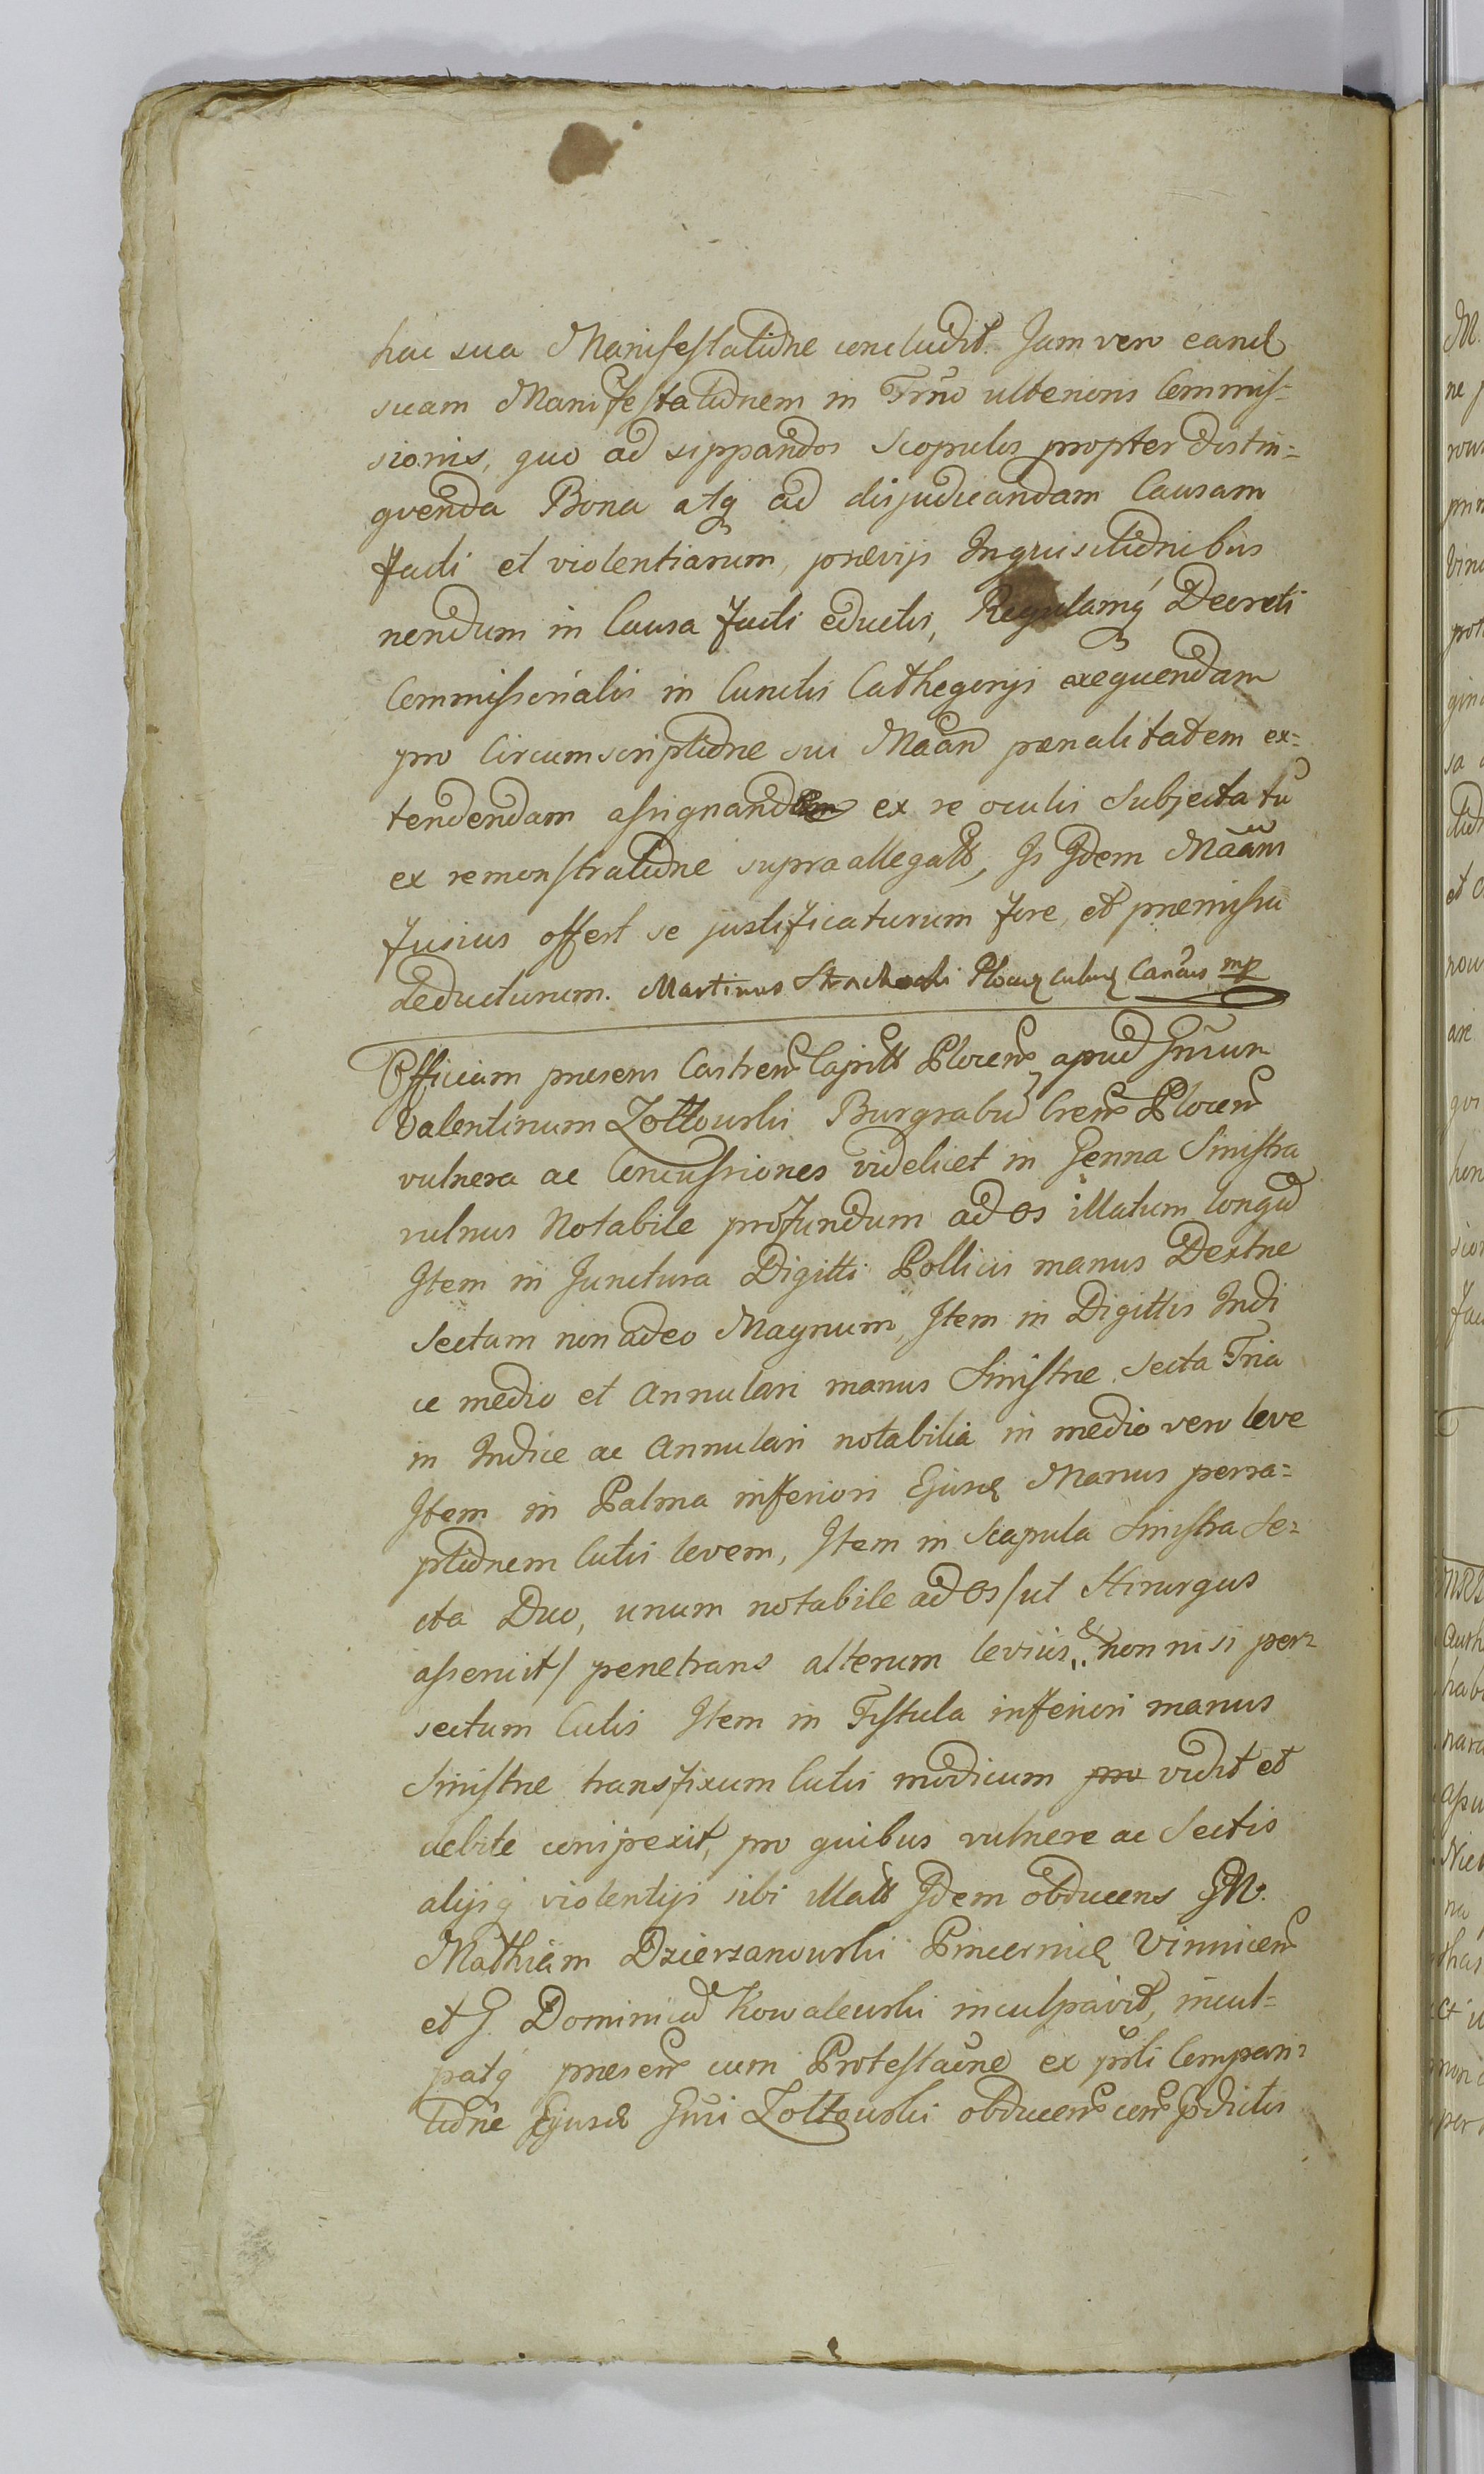 hac sua Manifestatiōne concludit. Jam vero eand
suam Manifestatiōnem in Trno ulterioris Commis=
sionis, quo ad sippandos Scopulos propter distin=
gvenda Bona atq ad disjudicandam Causam
facti et violentiarum, praevijs Inquisitiōnibus
nendum in Causa facti eductis, Regulamq Decreti
Commissorialis in Cunctis Cathegorijs exequendam
pro Circumscriptiōne sui Maān paenalitatem ex=
tendendam assignandam ex re oculis Subjecta tū
ex remonstratiōne supra allegatt, Is Idem Maāns
fusius offert se justificaturum fore, et praemissa
deducturum. Martinus Plocen Canctus mp
Officium praesens Castren Capitt Plocen, apud Gnrum
Valentinum Zołtowski Burgrabiū Cren Plocen
vulnera ac Concussiones videlicet in Genna Sinistra
vulnus Notabile profundum ad os illatum longū
Item in Junctura Digitti Pollicis manus Dextrae
Sectum non adeo Magnum, Item in Digittis Indi
ce medio et Annulari manus Sinistrae Secta Tria
in Indice ac Annulari notabilia in medio vero leve
Item in Palma inferiori Ejusd Manus perra=
ptiōnem Cutis levem, Item in Scapula Sinistra Se=
cta Duo, unum notabile ad Os /ut Hirurgus
asseruit/ penetrans alterum levius & non nisi per=
sectum Cutis Item in Fistula inferiori manus
Sinistrae transfixum Cutis modicum pro vidit et
debite conspexit, pro quibus vulnere ac Sectis
alijsq violentijs sibi illatt Idem obducens GM.
Mathiam Dzierzanowski Pincernid Vinnicen
et G. Dominicū Kowalewski inculpavit, incul=
patq praesen cum Protestaōne ex pnti Compari=
tiōne Ejusd Gnsi Zołtowski obducen cen pdictis